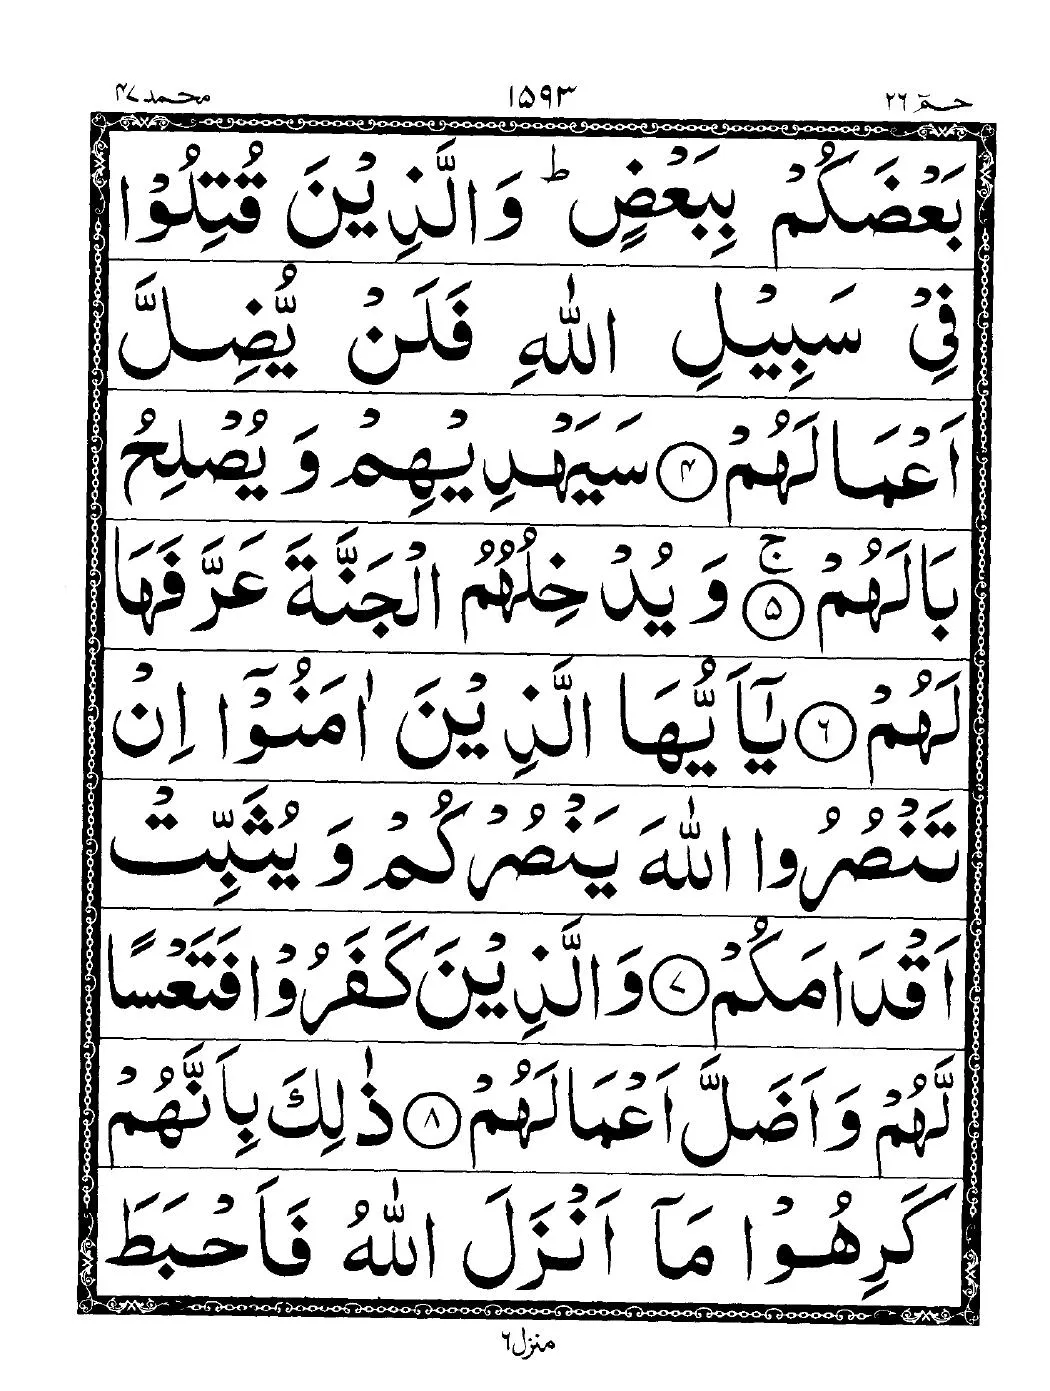 حٰمٓ ٢٦ ١٥٩٣ محمد ٤٧
بَعْضَكُمْ بِبَعْضٍ ؕ وَالَّذِیْنَ قُتِلُوْا
فِیْ سَبِیْلِ اللّٰهِ فَلَنْ یُّضِلَّ
اَعْمَالَهُمْ ﴿۴﴾ سَیَهْدِیْهِمْ وَ یُصْلِحُ
بَالَهُمْ ۚ﴿۵﴾ وَ یُدْخِلُهُمُ الْجَنَّةَ عَرَّفَهَا
لَهُمْ ﴿۶﴾ یٰۤاَیُّهَا الَّذِیْنَ اٰمَنُوْۤا اِنْ
تَنْصُرُوا اللّٰهَ یَنْصُرْكُمْ وَ یُثَبِّتْ
اَقْدَامَكُمْ ﴿۷﴾ وَالَّذِیْنَ كَفَرُوْا فَتَعْسًا
لَّهُمْ وَ اَضَلَّ اَعْمَالَهُمْ ﴿۸﴾ ذٰلِكَ بِاَنَّهُمْ
كَرِهُوْا مَاۤ اَنْزَلَ اللّٰهُ فَاَحْبَطَ
منزل ٦